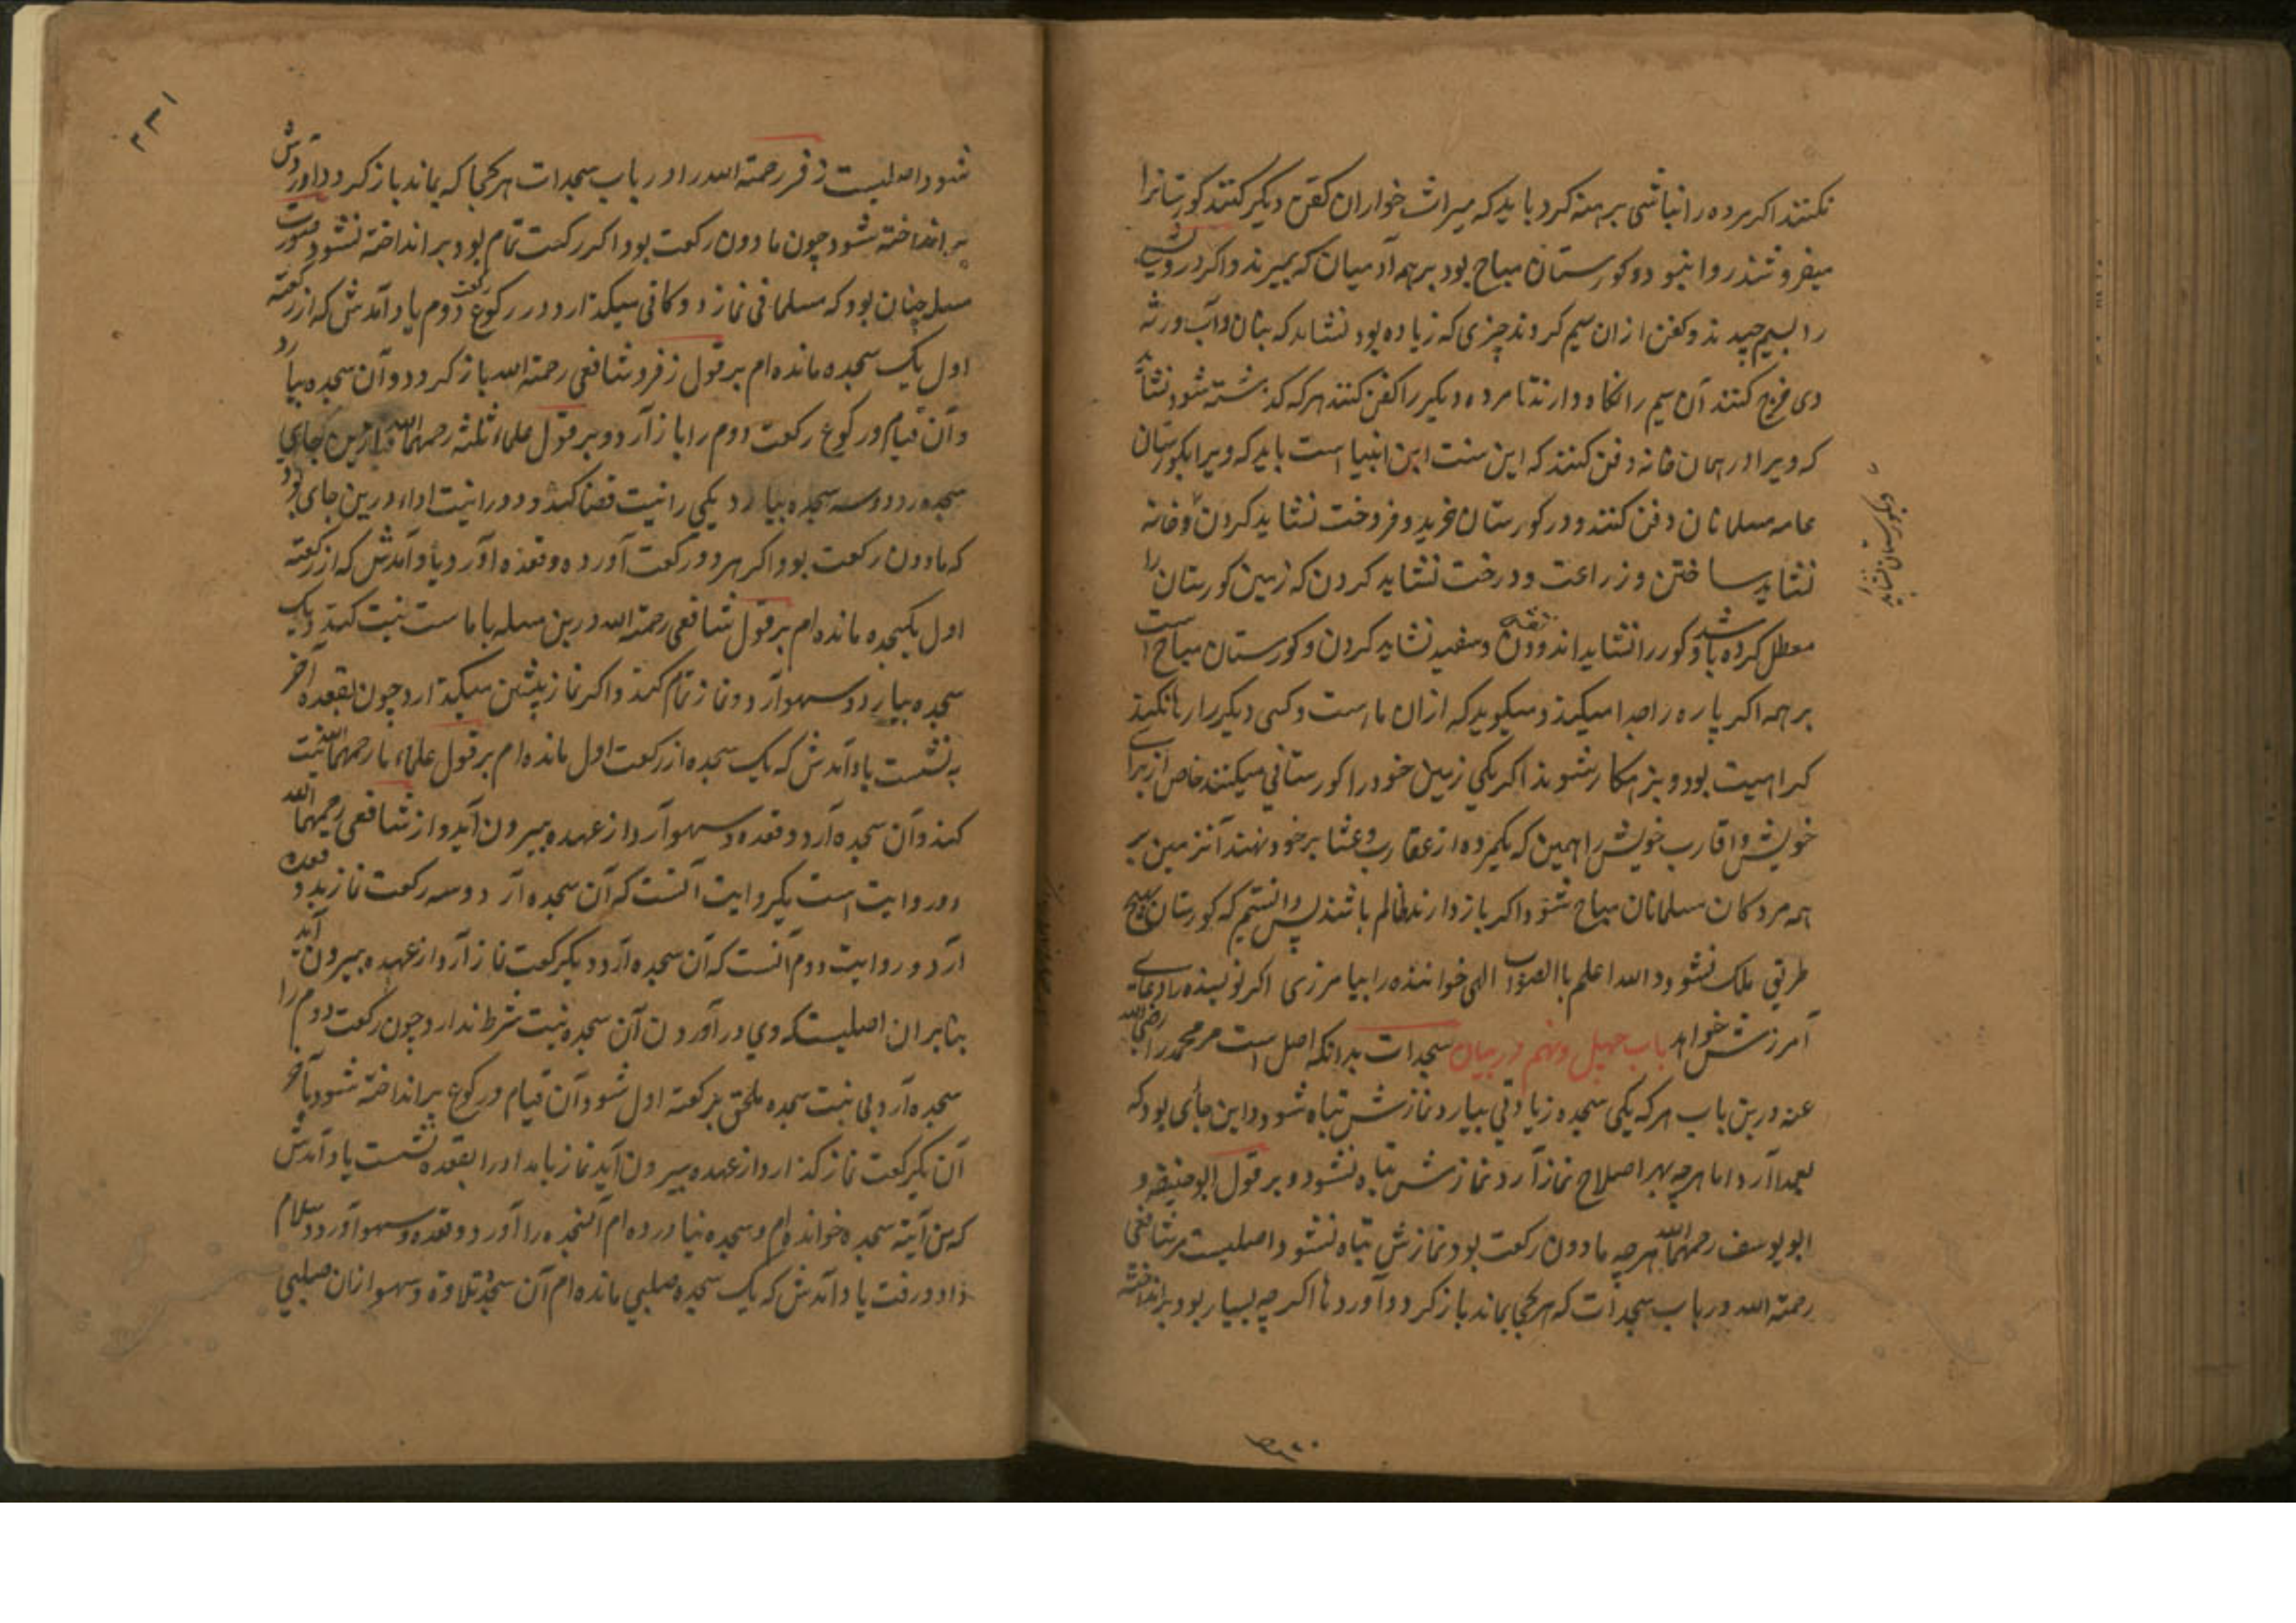 نکنند اکر مرده را نباشی برهنه کرد باید که میراث خواران کفن دیکر کنند کورستانرا
میفروشند روا نبود و کورستان مباح بود بر همه آدمیان که بمیرند و اکر درویشی
را بسیم چیدند و کفن از ان سیم کردند چیزی که زیاده بود نشاید که بنان و آب ورثه
دی خرج کنند آن سیم را نکاه دارند تا مرده دیکر را کفن کنند هر که کذشته شود نشاید
که ویرا در همان خانه دفن کنند که این سنت این انبیا است باید که ویرا بکورستان
عامه مسلمانان دفن کنند و در کورستان خرید و فروخت نشاید کردن و خانه
نشاید ساختن و زراعت و درخت نشاید کردن که زمین کورستان را
معطل کرده باشد و کور را نشاید اندودن و سفید نشاید کردن و کورستان مباح است
بر همه اکر پاره را جدا میکند و میکوید که ازان ماست و کسی دیکر را رها نکند
کراهیت بود و بزهکار شوند اکر یکی زمین خود را کورستانی میکنند خاص از برای
خویش و اقارب خویش را همین که یکمرده از عقارب و عشایر خود نهند آنزمین بر
همه مردکان مسلمانان مباح شود و اکر باز دارند ظالم باشند پس دانستیم که کورستان بهیچ
طریق ملک نشود والله اعلم باالصواب الهی خواننده را بیامرزی اکر نویسنده را دعای
آمرزش خواهد باب چهل و نهم در بیان سجدات بدانکه اصل است مر محمد را رضی الله
عنه درین باب هر که یکی سجده زیادتی بیارد نمازش تباه شود و این جائی بود که
بعمدا آرد اما هر چه بهر اصلاح نماز آرد نمازش تباه نشود و بر قول ابو حنیفه و
ابو یوسف رحمهما الله هر چه مادون رکعت بود نمازش تباه نشود اصلیست مر شافعی
رحمة الله در باب سجدات که هر کجا بماند باز کردد و آورد تا اکر چه بسیار بود بر انداخته
کورستان نشاید
۲۳۱
شود اصلیست زفر رحمة الله را در باب سجدات هر کجا که بماند باز کردد و آوردش
بر انداخته شود چون مادون رکعت بود اکر رکعت تمام بود بر انداخته نشود صورت
مسله چنان بود که مسلمانی نماز دوکانی میکذارد در رکوع رکعت دوم یاد آمدش که از رکعت
اول یک سجده مانده ام بر قول زفر و شافعی رحمة الله باز کردد و آن سجده بیارد
و آن قیام و رکوع رکعت دوم را باز آرد و بر قول علماء ثلثه رحمهم الله هم ازین جای
سجده رود و سه سجده بیارد یکی را نیت قضا کند و دو را نیت ادا، درین جای بود
که مادون رکعت بود اکر هر دو رکعت آورده و قعده آورد یاد آمدش که از رکعت
اول یکسجده مانده ام بر قول شافعی رحمة الله درین مسله با ماست نیت کند و یک
سجده بیارد و سهو آرد و نماز تمام کند و اکر نماز پیشین میکذارد چون بقعده آخر
به نشست یاد آمدش که یک سجده از رکعت اول مانده ام بر قول علماء ما رحمهم الله نیت
کند و آن سجده آرد و قعده و سهو آرد از عهده بیرون آید و از شافعی رحمهما الله
دو روایت است یکروایت آنست که آن سجده آرد و سه رکعت نماز بدو قعده
آرد و روایت دوم آنست که آن سجده آرد و یکرکعت نماز آرد از عهده بیرون آید
بنابر ان اصلیست که وی در آوردن آن سجده نیت شرط ندارد چون رکعت دوم را
سجده آرد بی نیت سجده ملحق برکعت اول شود آن قیام و رکوع بر انداخته شود باخر
آن یکرکعت نماز کذارد از عهده بیرون آید نماز بامداد را بقعده نشست یاد آمدش
که من آیته سجده خوانده ام و سجده نیاورده ام آنسجده را آورد و قعده و سهو آورد و سلام
داد و رفت یاد آمدش که یک سجده صلبی مانده ام آن سجده تلاوة و سهو ازان صلبی